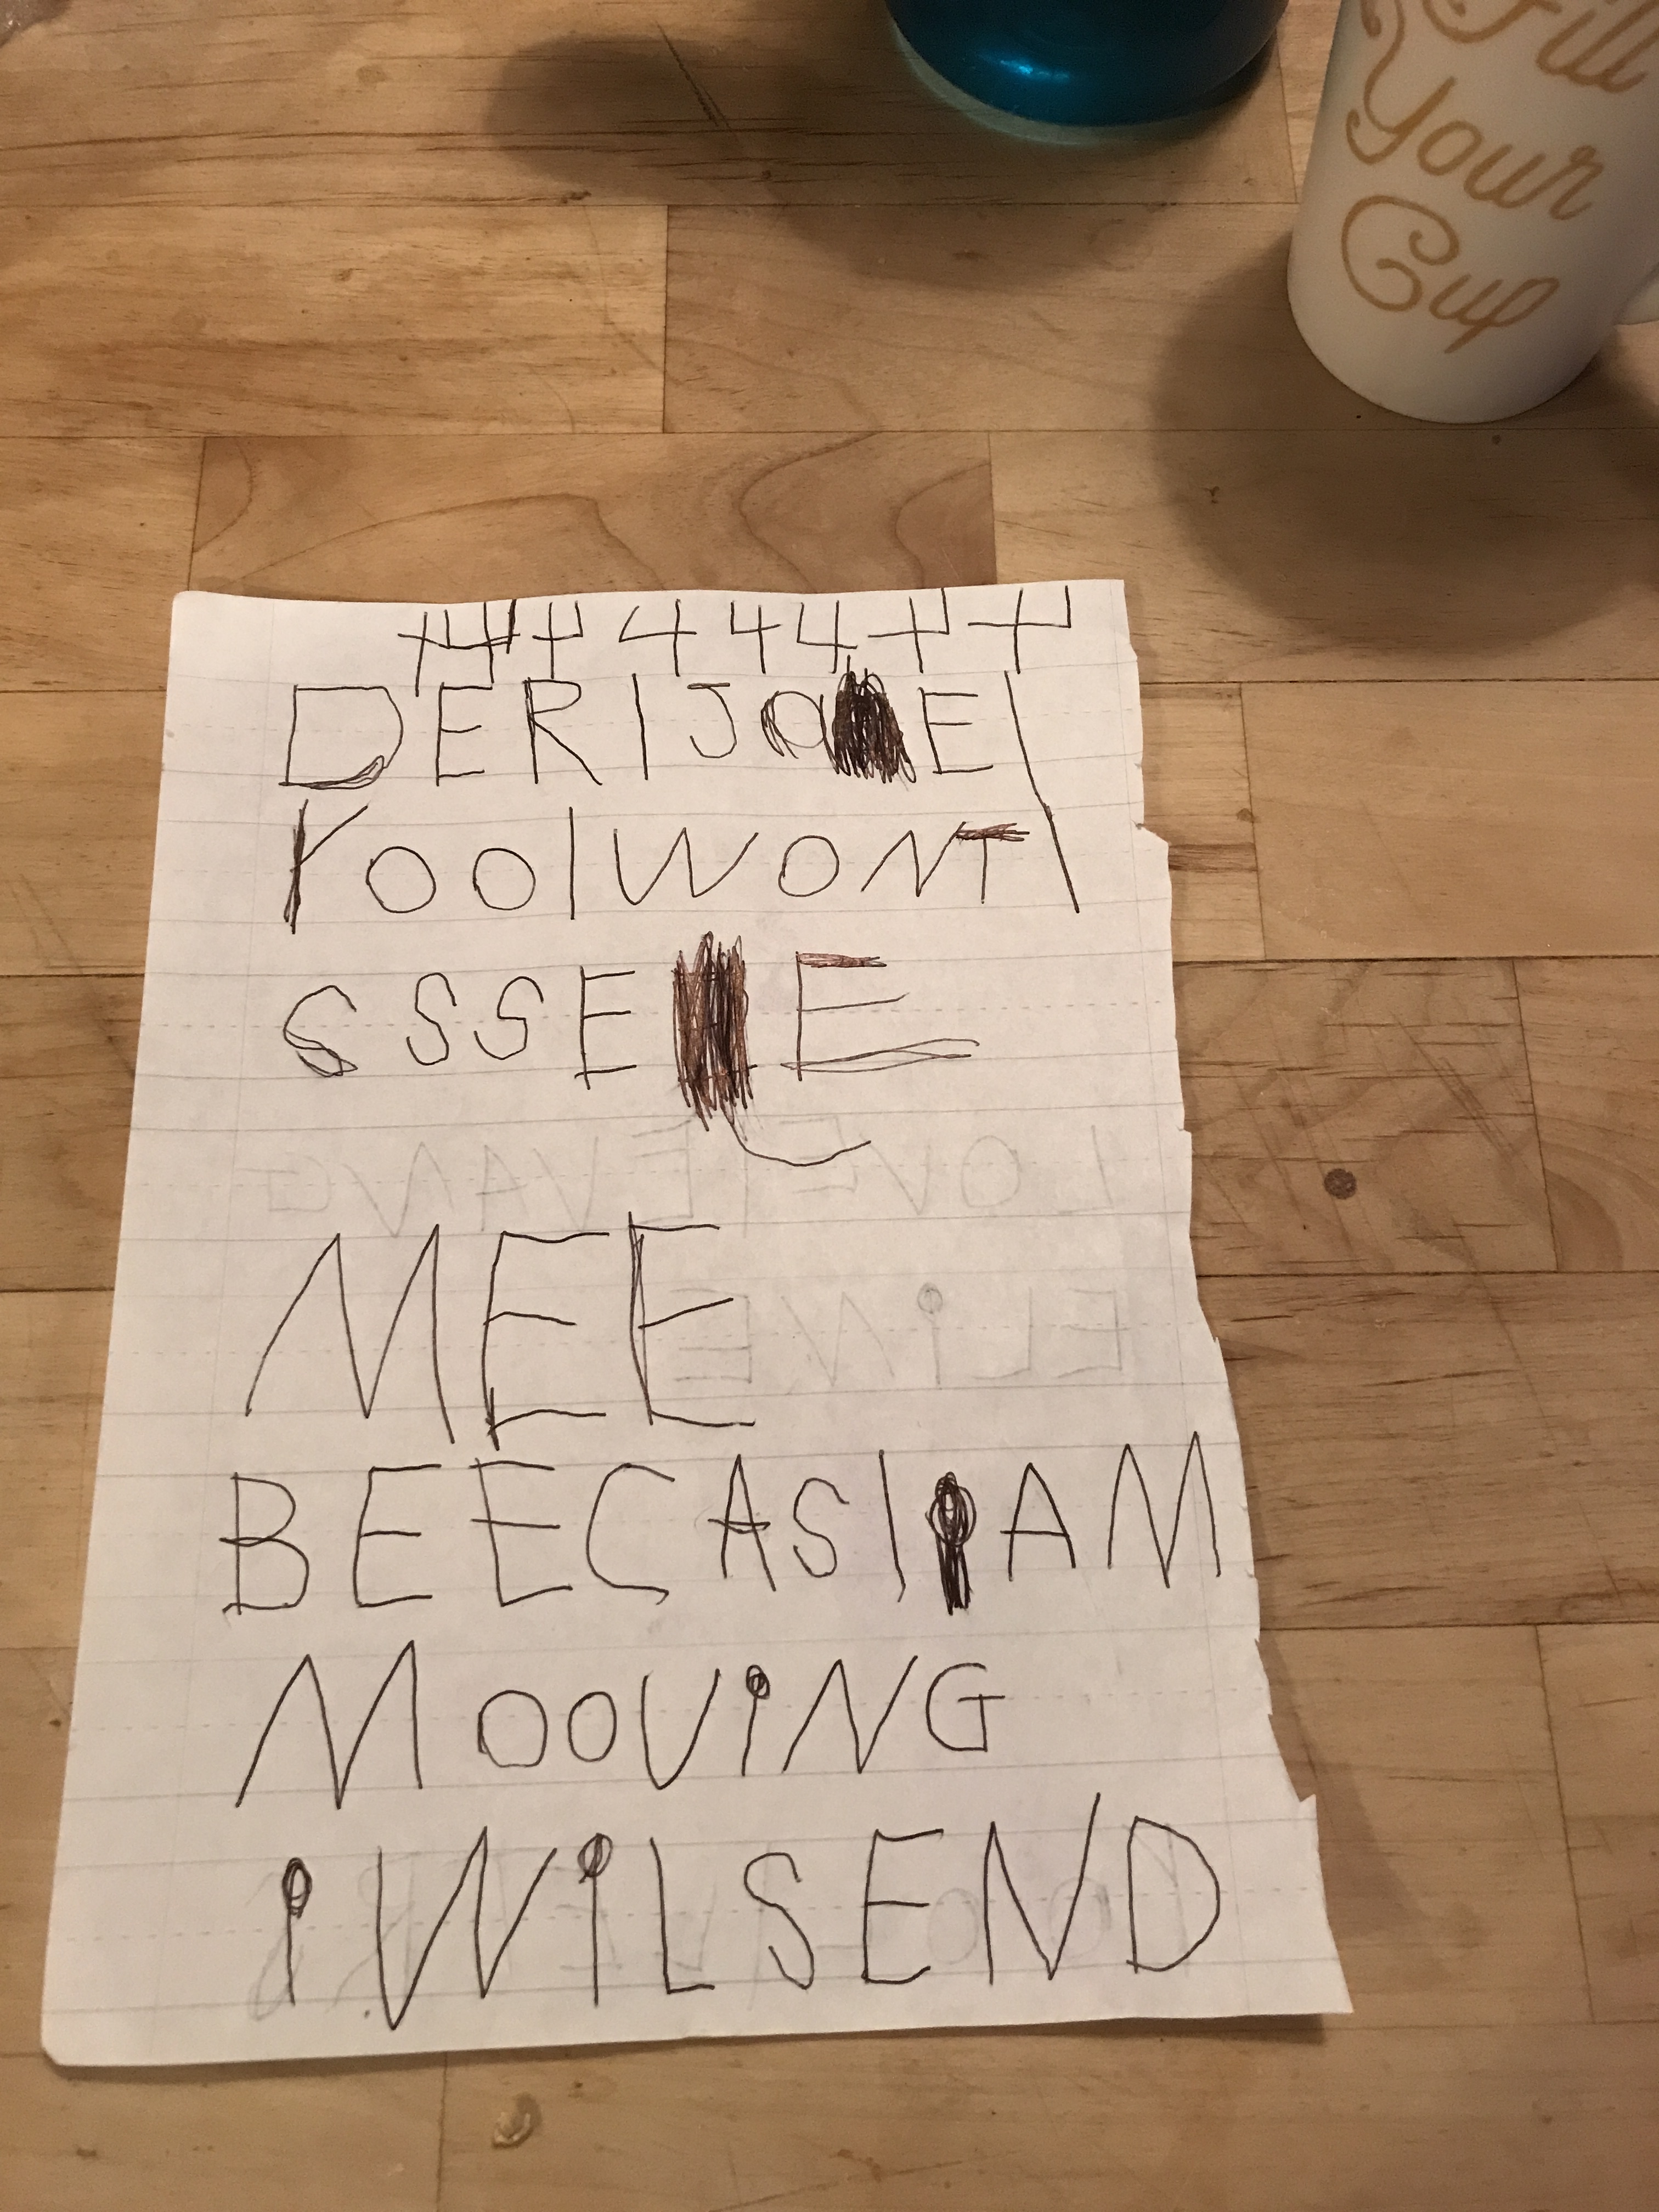 Fill
Your
Cup
44444444
DER|JOE\
YOO|WONT
SSSEE
MEE
BEECAS|iAM
MOOViNG
iWiLSEND